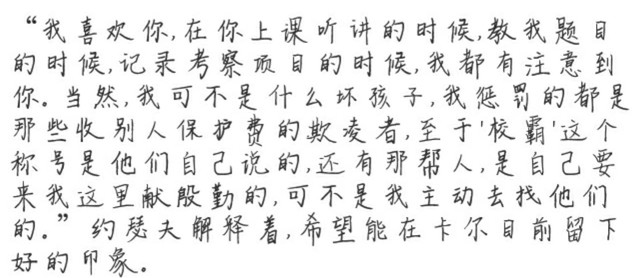 “我喜欢你,在你上课听讲的时候,教我题目
的时候,记录考察项目的时候,我都有注意到
你。当然,我可不是什么坏孩子,我惩罚的都是
那些收别人保护费的欺凌者,至于'校霸'这个
称号是他们自己说的,还有那帮人,是自己要
来我这里献殷勤的,可不是我主动去找他们
的。”约瑟夫解释着,希望能在卡尔目前留下
好的印象。